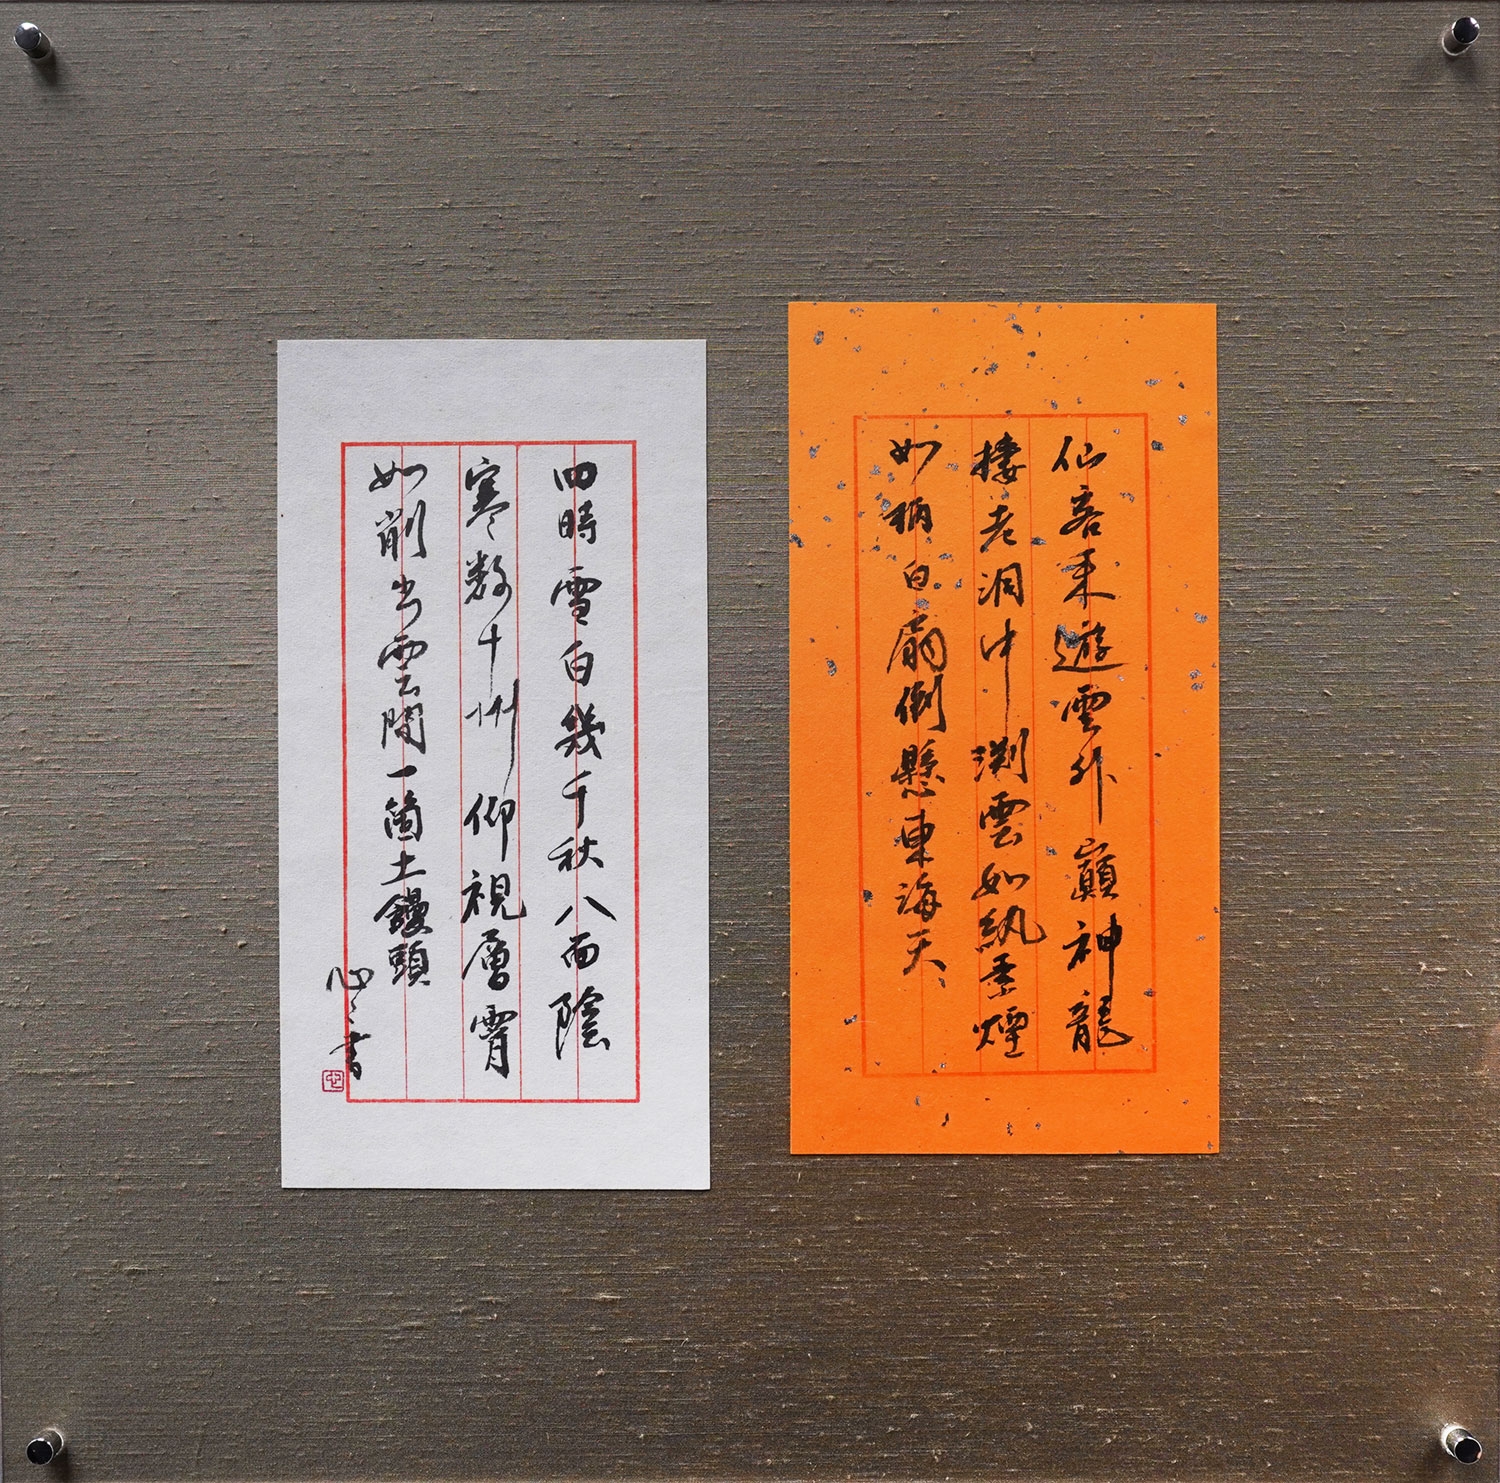 仙客来遊雲外巓神龍
棲老洞中渕雲如紈素煙
如柄白扇倒懸東海天
四時雪白幾千秋八面陰
寒数十州仰視層霄
如削出雲間一箇土饅頭
心書